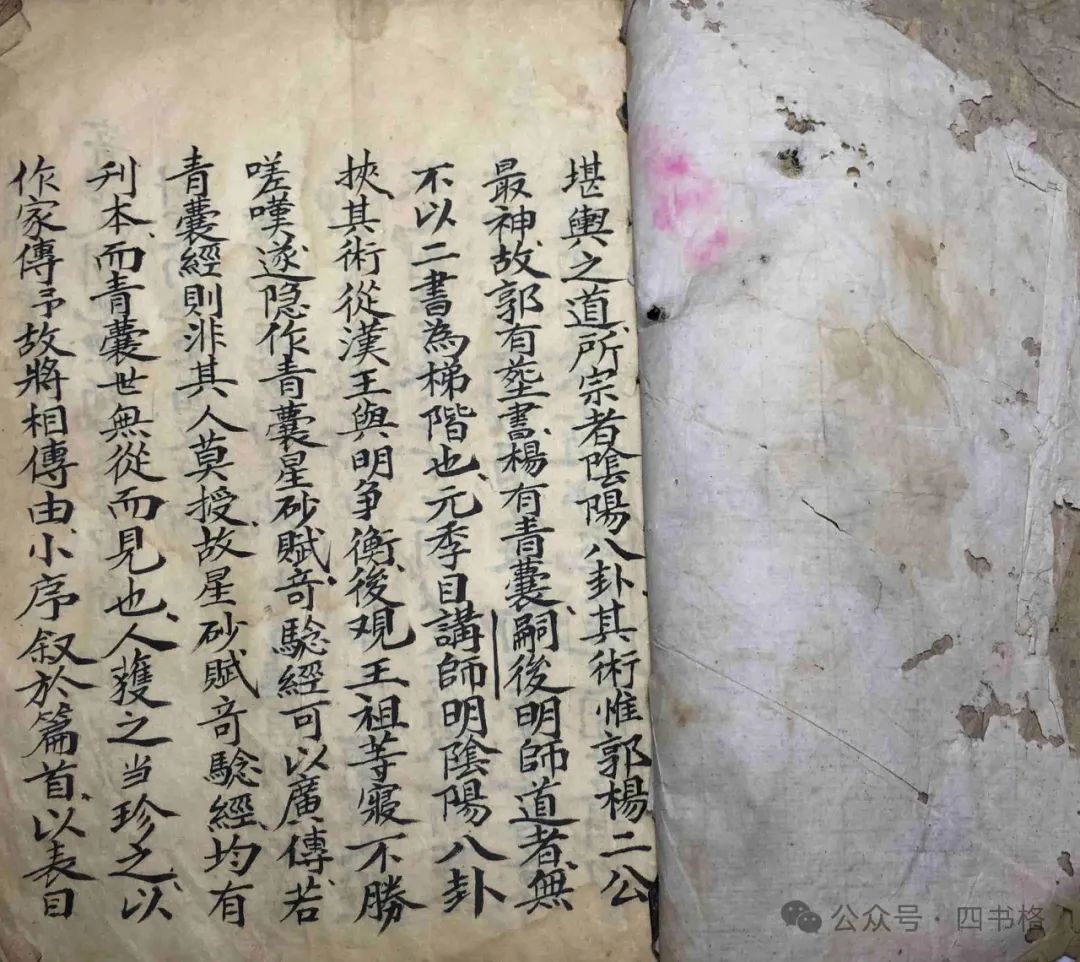 堪輿之道所宗者陰陽八卦其術惟郭楊二公
最神故郭有塟書楊有青囊嗣後明師道者無
不以二書為梯階也元季目講師明陰陽八卦
挾其術從漢王與明争衡後观王祖等寢不勝
嗟嘆遂隐作青囊星砂賦竒騐經可以廣傳若
青囊經則非其人莫授故星砂賦竒騐經均有
刋本而青囊世無從而見也人獲之当珍之以
作家傳予故將相傳由小序叙於篇首以表目
公众号·四书格